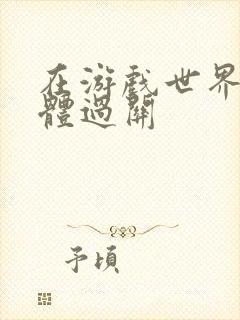 在游戏世界
體過關
予頃